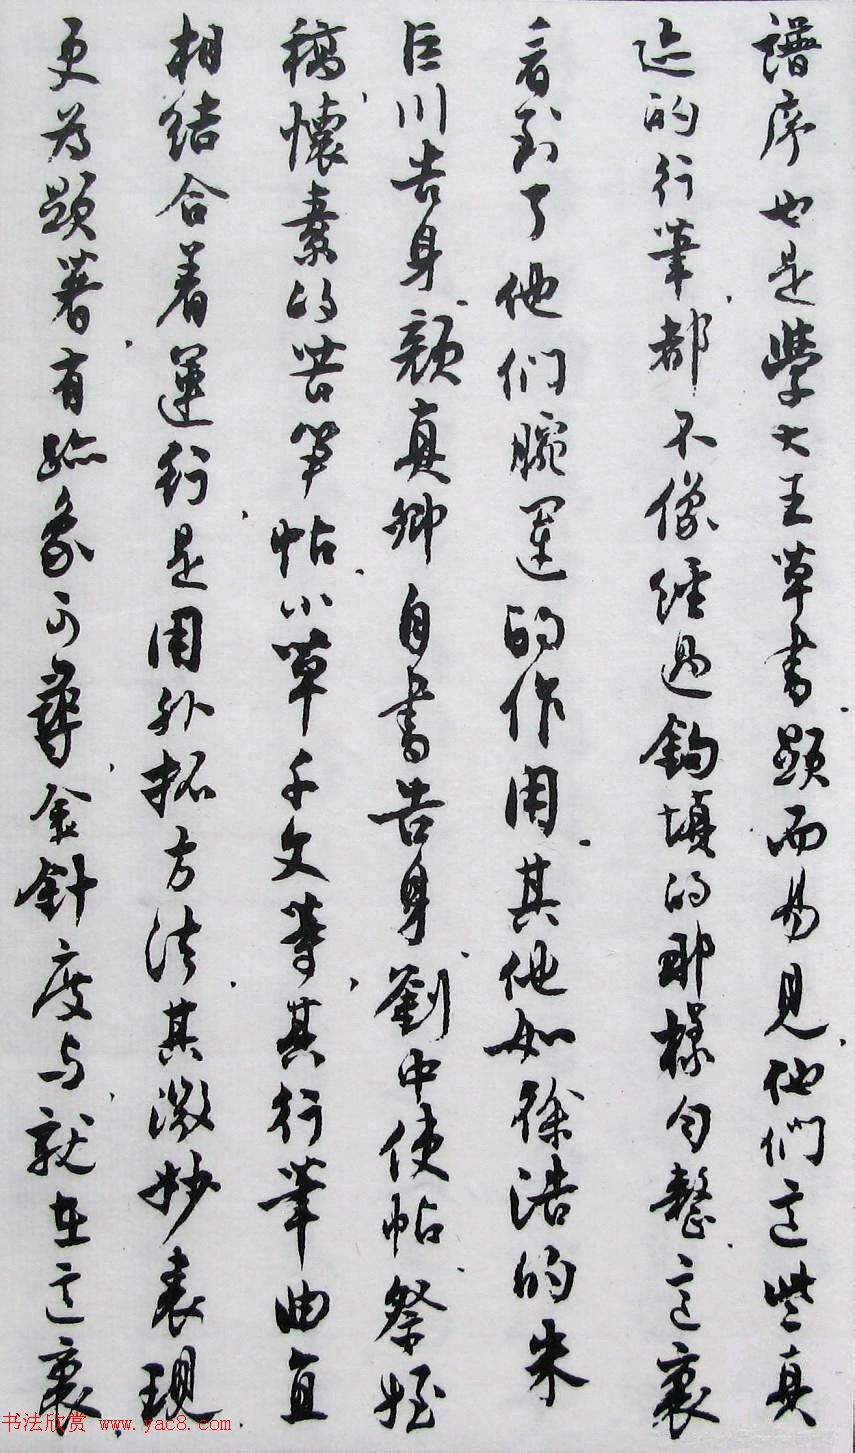 譜序也是學大王草書顯而易見他們這些真
迹的行筆都不像經過鈎填的那樣勻整這裏
看到了他們腕運的作用其他如徐浩的朱
巨川告身顏真卿自書告身劉中使帖祭姪
稿懷素的苦笋帖小草千文等其行筆曲直
相結合着運行是用外拓方法其微妙表現
更為顯著有跡象可尋金針度与就在這裏
书法欣赏 www.yac8.com